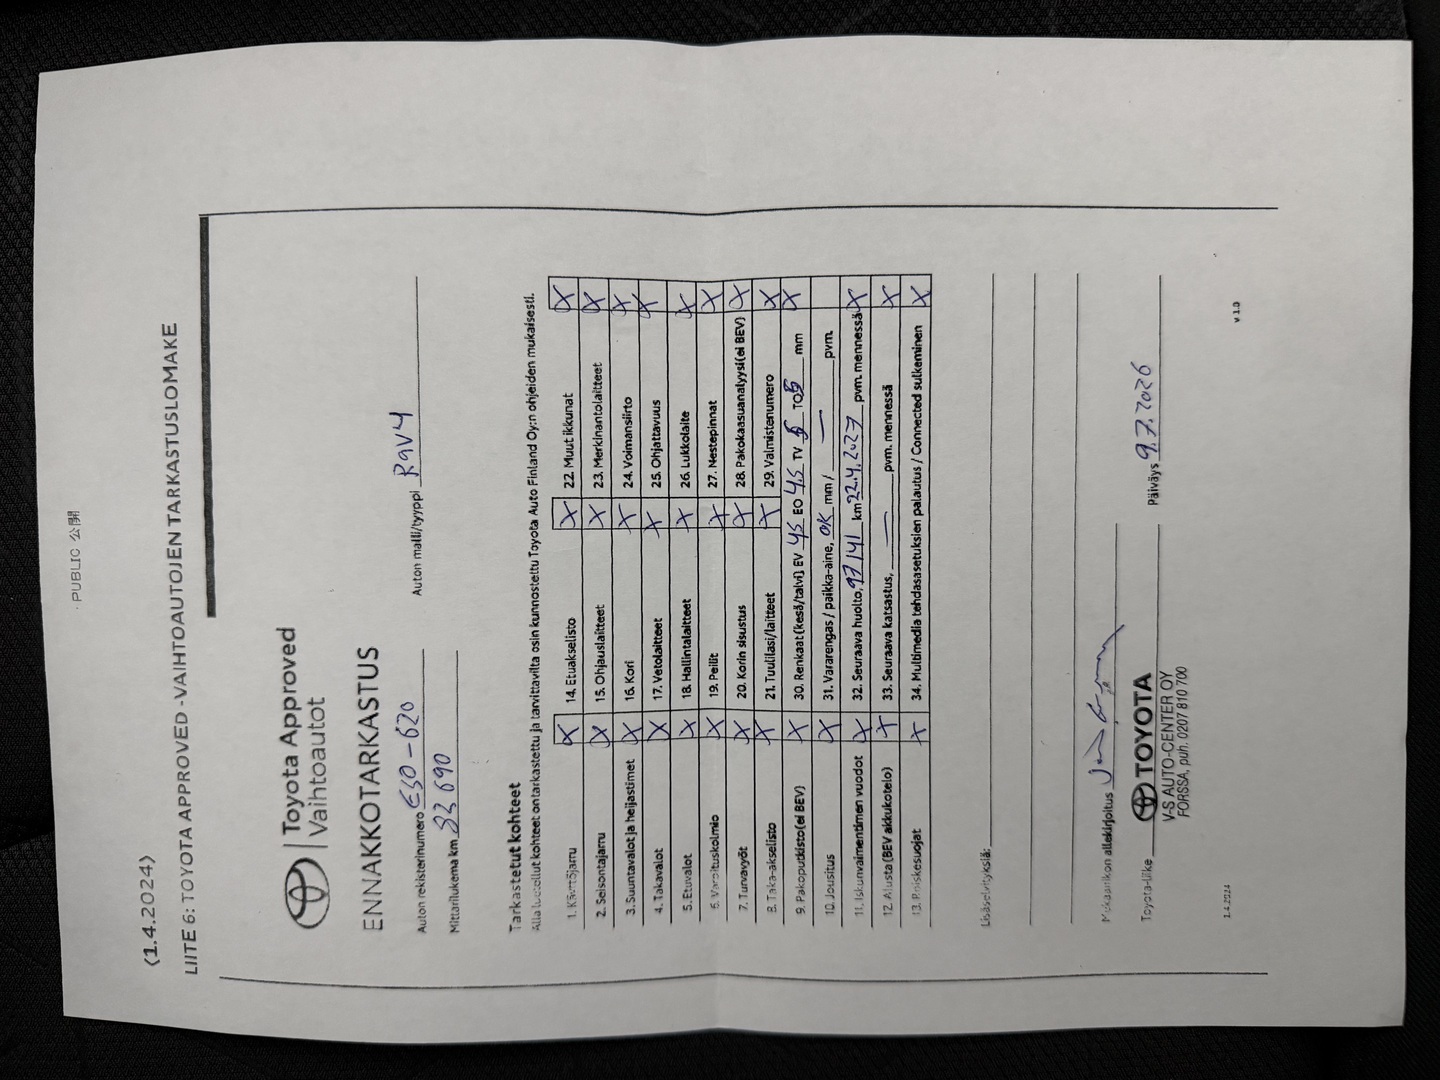 PUBLIC 公開
(1.4.2024)
LIITE 6: TOYOTA APPROVED -VAIHTOAUTOJEN TARKASTUSLOMAKE
Toyota Approved
Vaihtoautot
ENNAKKOTARKASTUS
Auton rekisterinumero ESO-620 Auton malli/tyyppi RAV4
Mittarilukema km 33 690
Tarkastetut kohteet
Alla luetellut kohteet on tarkastettu ja tarvittavilta osin kunnostettu Toyota Auto Finland Oy:n ohjeiden mukaisesti.
1. Käyttöjarru X 14. Etuakselisto X 22. Muut ikkunat X
2. Seisontajarru X 15. Ohjauslaitteet X 23. Merkinantolaitteet X
3. Suuntavalot ja heijastimet X 16. Kori X 24. Voimansiirto X
4. Takavalot X 17. Vetolaitteet X 25. Ohjattavuus X
5. Etuvalot X 18. Hallintalaitteet X 26. Lukkolaite X
6. Varoituskolmio X 19. Peilit X 27. Nestepinnat X
7. Turvavyöt X 20. Korin sisustus X 28. Pakokaasuanalyysi(ei BEV) X
8. Taka-akselisto X 21. Tuulilasi/laitteet X 29. Valmistenumero X
9. Pakoputkisto(ei BEV) X 30. Renkaat (kesä/talvi) EV 4,5 EO 4,5 TV 5 TO 5 mm X
10. Jousitus X 31. Vararengas / paikka-aine, OK mm / — pvm.
11. Iskunvaimentimen vuodot X 32. Seuraava huolto, 97141 km 22.4.2027 pvm. mennessä X
12. Alusta (BEV akkukotelo) X 33. Seuraava katsastus, — pvm. mennessä X
13. Roiskesuojat X 34. Multimedia tehdasasetuksien palautus / Connected sulkeminen X
Lisäselvityksiä:
Mekaanikon allekirjoitus
Toyota-liike TOYOTA Päiväys 9.7.2026
V-S AUTO-CENTER OY
FORSSA, puh. 0207 810 700
1.4.2024 v 1.0